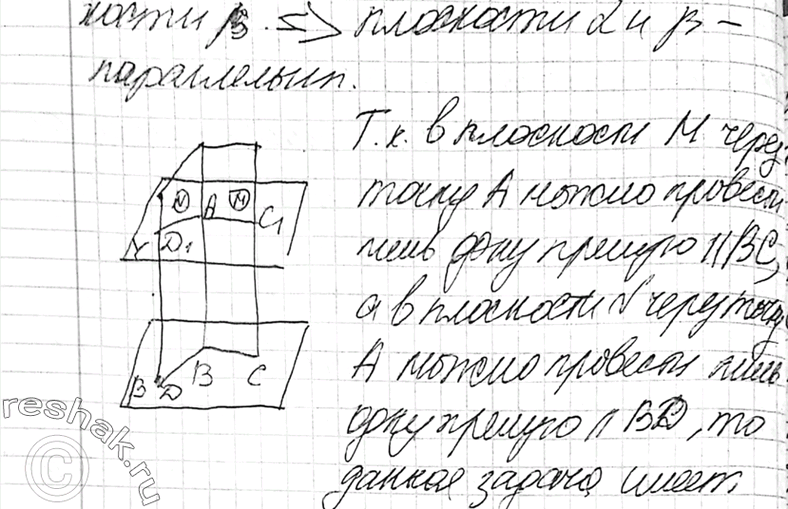 кости β. => плоскости α и β –
параллельны.
Т.к. в плоскости М через
точку А можно провести
лишь одну прямую || BC,
а в плоскости N через точку
А можно провести лишь
одну прямую || BD, то
данная задача имеет
N A M C₁
D₁
B C
β D
reshak.ru